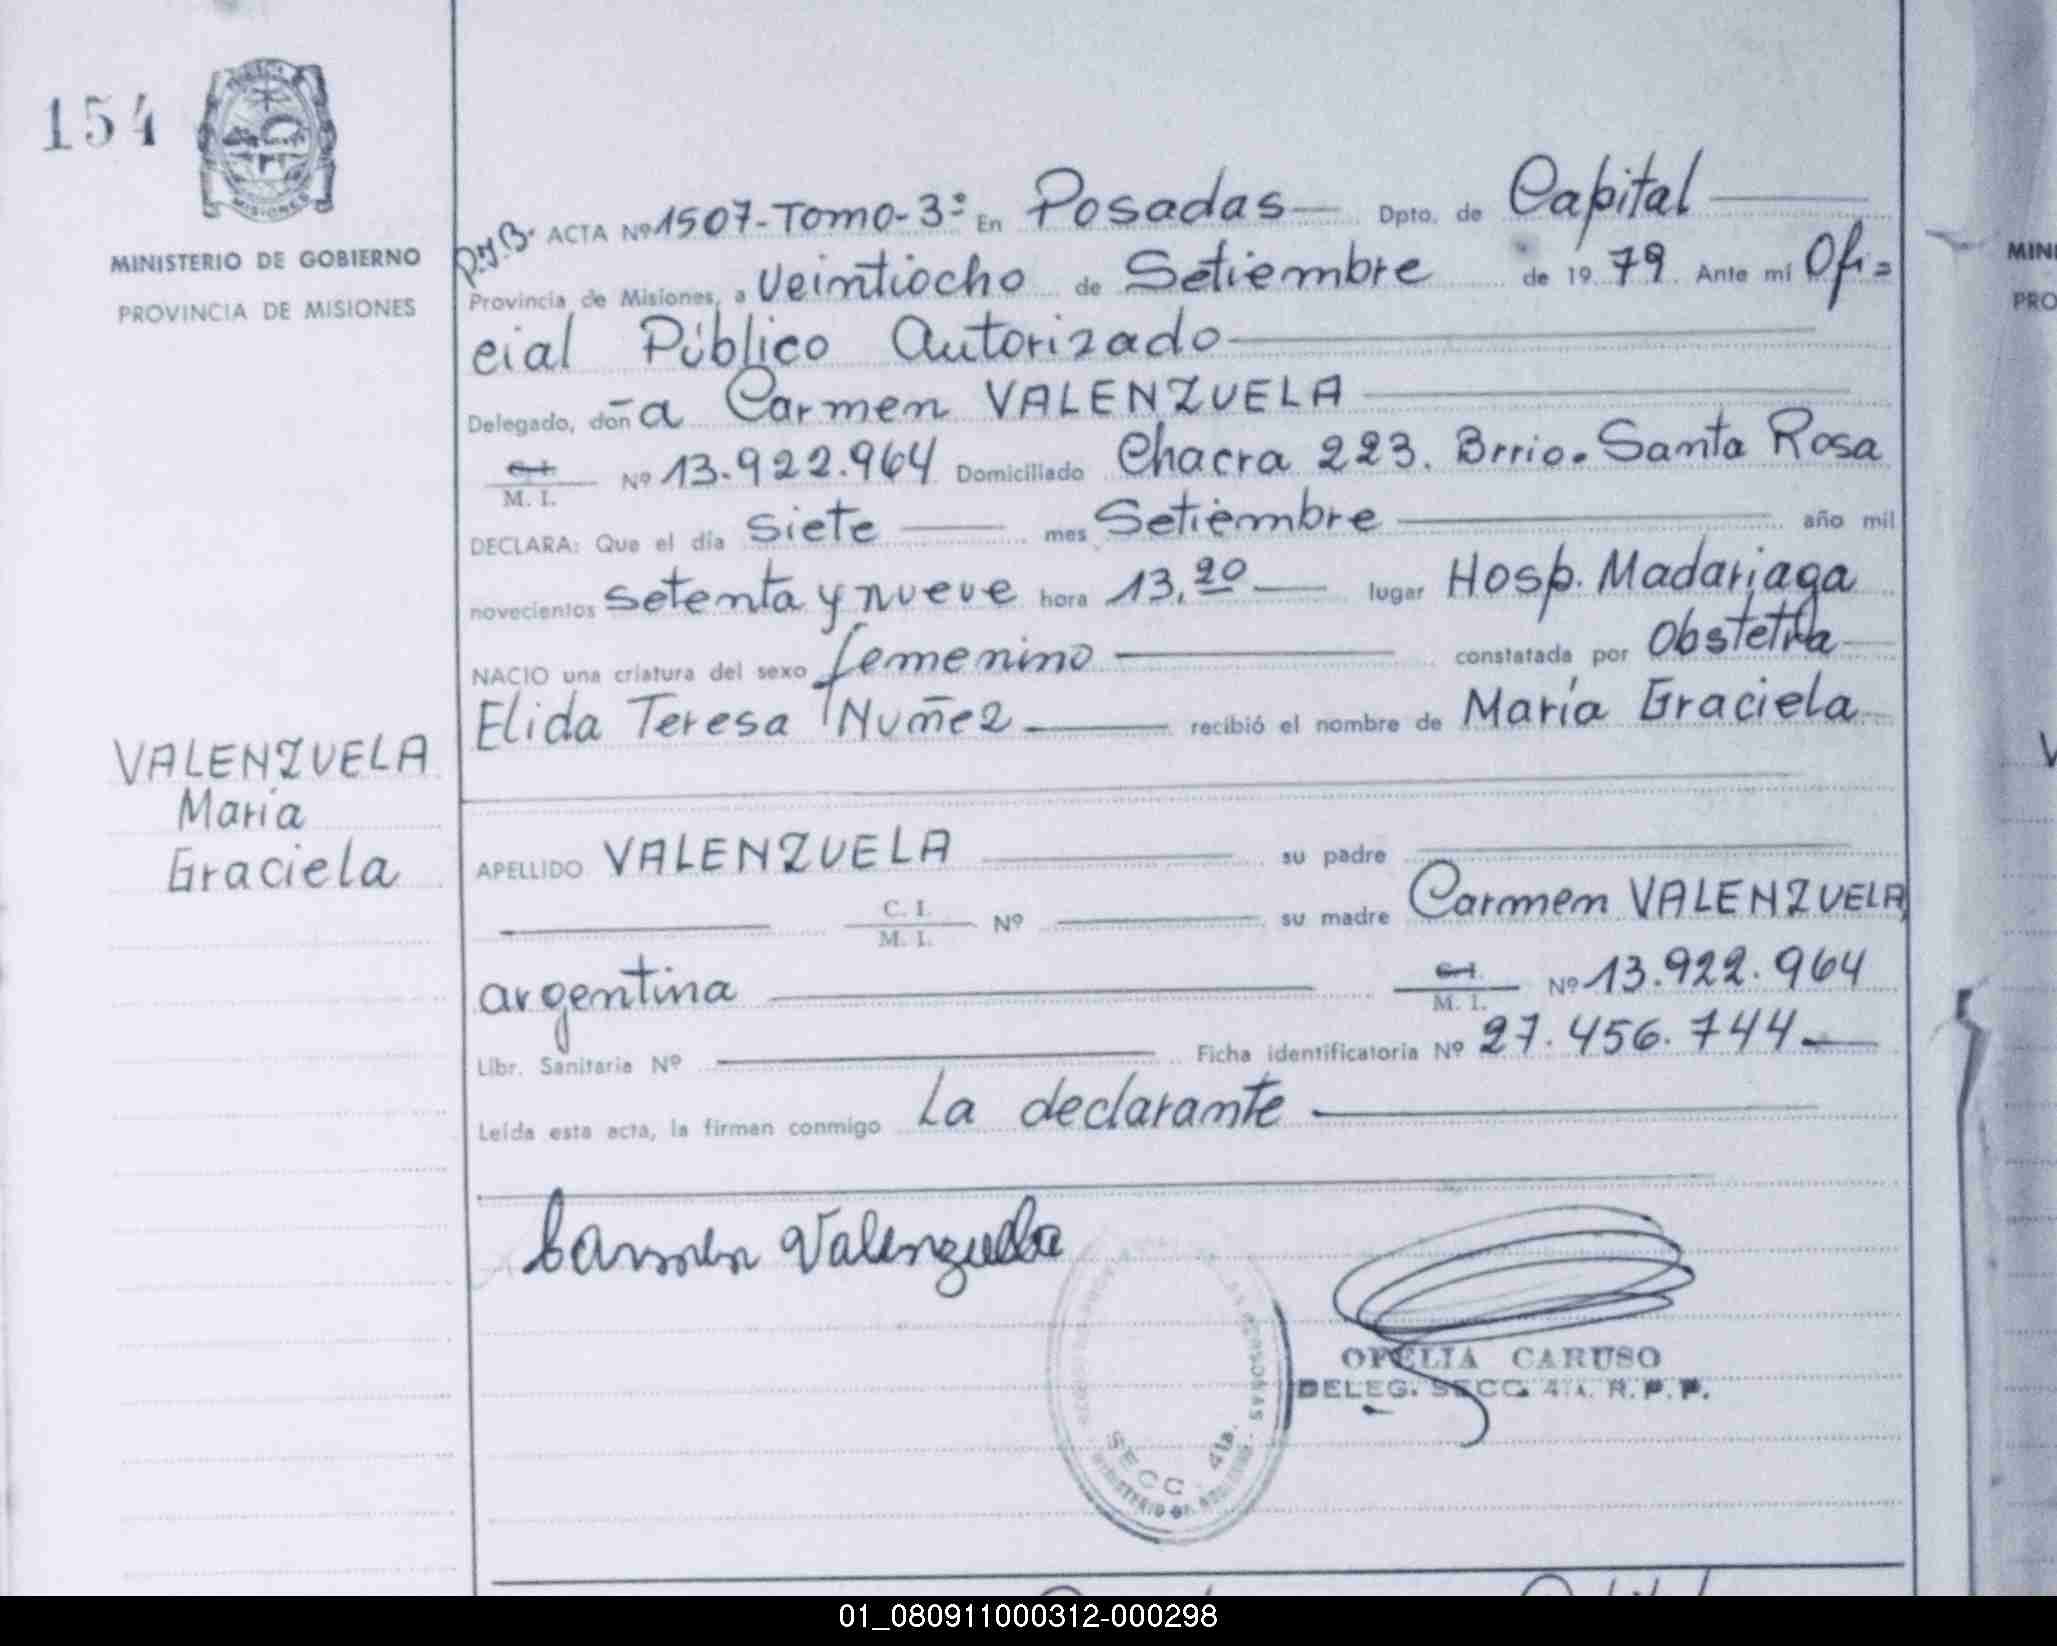 154
MISIONES
MINISTERIO DE GOBIERNO
PROVINCIA DE MISIONES
VALENZUELA
María
Graciela
P.y.B. ACTA Nº 1507-Tomo-3º En Posadas Dpto. de Capital
Provincia de Misiones, a veintiocho de Setiembre de 19 79 Ante mí Ofi=
cial Público Autorizado
Delegado, doña Carmen VALENZUELA
C.I. M. I. Nº 13.922.964 Domiciliado Chacra 223. Brrio. Santa Rosa
DECLARA: Que el día siete mes Setiembre año mil
novecientos setenta y nueve hora 13,20 lugar Hosp. Madariaga
NACIO una criatura del sexo femenino constatada por Obstetra
Elida Teresa Nuñez recibió el nombre de María Graciela
APELLIDO VALENZUELA su padre
C. I. M. I. Nº su madre Carmen VALENZUELA,
argentina C.I. M. I. Nº 13.922.964
Libr. Sanitaria Nº Ficha identificatoria Nº 27.456.744
Leída esta acta, la firman conmigo La declarante
Carmen Valenzuela
SECC. 4ta.
OFELIA CARUSO
DELEG. SECC. 4TA. R.P.P.
MINI
PRO
V
01_080911000312-000298